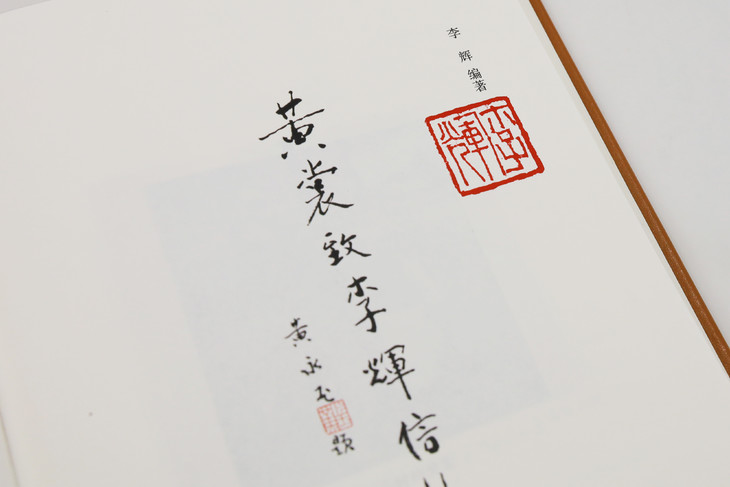 李辉编著
李輝
黄裳致李輝信
黄永玉
题